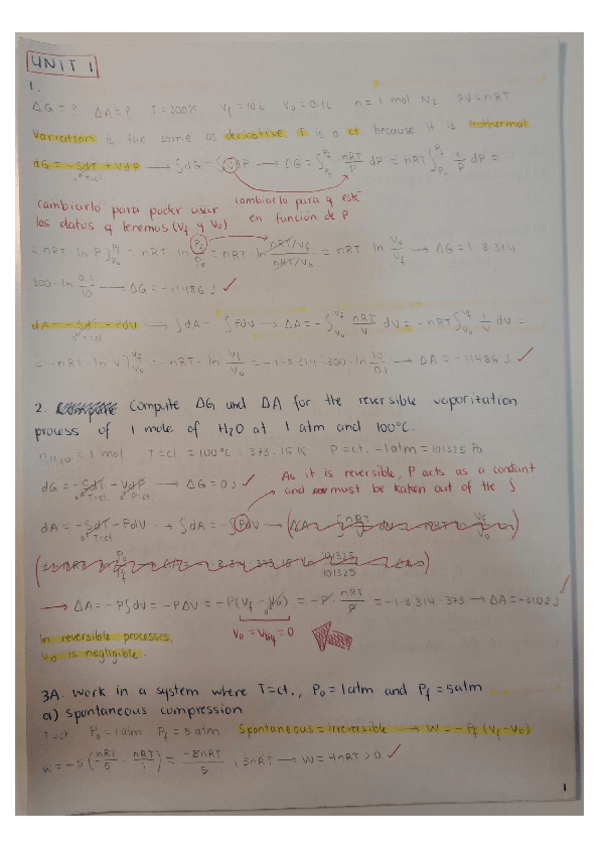 UNIT 1
1.
ΔG = ? ΔA = ? T = 300K Vf = 10L V0 = 0.1L n = 1 mol N2 PV = nRT
Variation is the same as derivative. T is a ct. because it is isothermal
dG = -SdT + VdP → ∫dG = ∫VdP → ΔG = ∫ nRT/P dP = nRT ∫ 1/P dP =
0 T=ct
cambiarlo para poder usar cambiarlo para q esté
los datos q tenemos (Vf y V0) en función de P
= nRT ln P ]Pf P0 = nRT · ln Pf/P0 = nRT ln (nRT/Vf)/(nRT/V0) = nRT ln V0/Vf → ΔG = 1 · 8.314
300 · ln 0.1/10 → ΔG = -11486 J ✓
dA = -SdT - PdV → ∫dA = -∫PdV → ΔA = -∫ nRT/V dV = -nRT ∫ 1/V dV =
0 T=ct
= -nRT · ln V ]Vf V0 = -nRT · ln Vf/V0 = -1 · 8.314 · 300 · ln 10/0.1 → ΔA = -11486 J ✓
2. Compute ΔG and ΔA for the reversible vaporization
process of 1 mole of H2O at 1 atm and 100°C.
nH2O = 1 mol T = ct = 100°C = 373.15K P = ct. = 1atm = 101325 Pa
dG = -SdT + VdP → ΔG = 0 J ✓ As it is reversible, P acts as a constant
0 T=ct 0 P=ct. and must be taken out of the ∫
dA = -SdT - PdV → ∫dA = -∫PdV →
0 T=ct
→ ΔA = -P∫dV = -PΔV = -P(Vf - V0) = -P · nRT/P = -1 · 8.314 · 373 → ΔA = -3102 J ✓
In reversible processes, V0 = Vliq = 0
V0 is negligible.
3A. Work in a system where T=ct., P0 = 1atm and Pf = 5atm
a) Spontaneous compression
T=ct. P0 = 1atm Pf = 5 atm Spontaneous = irreversible → W = -Pf (Vf - V0)
W = -5 (nRT/5 - nRT/1) = → W = 4nRT > 0 ✓
1